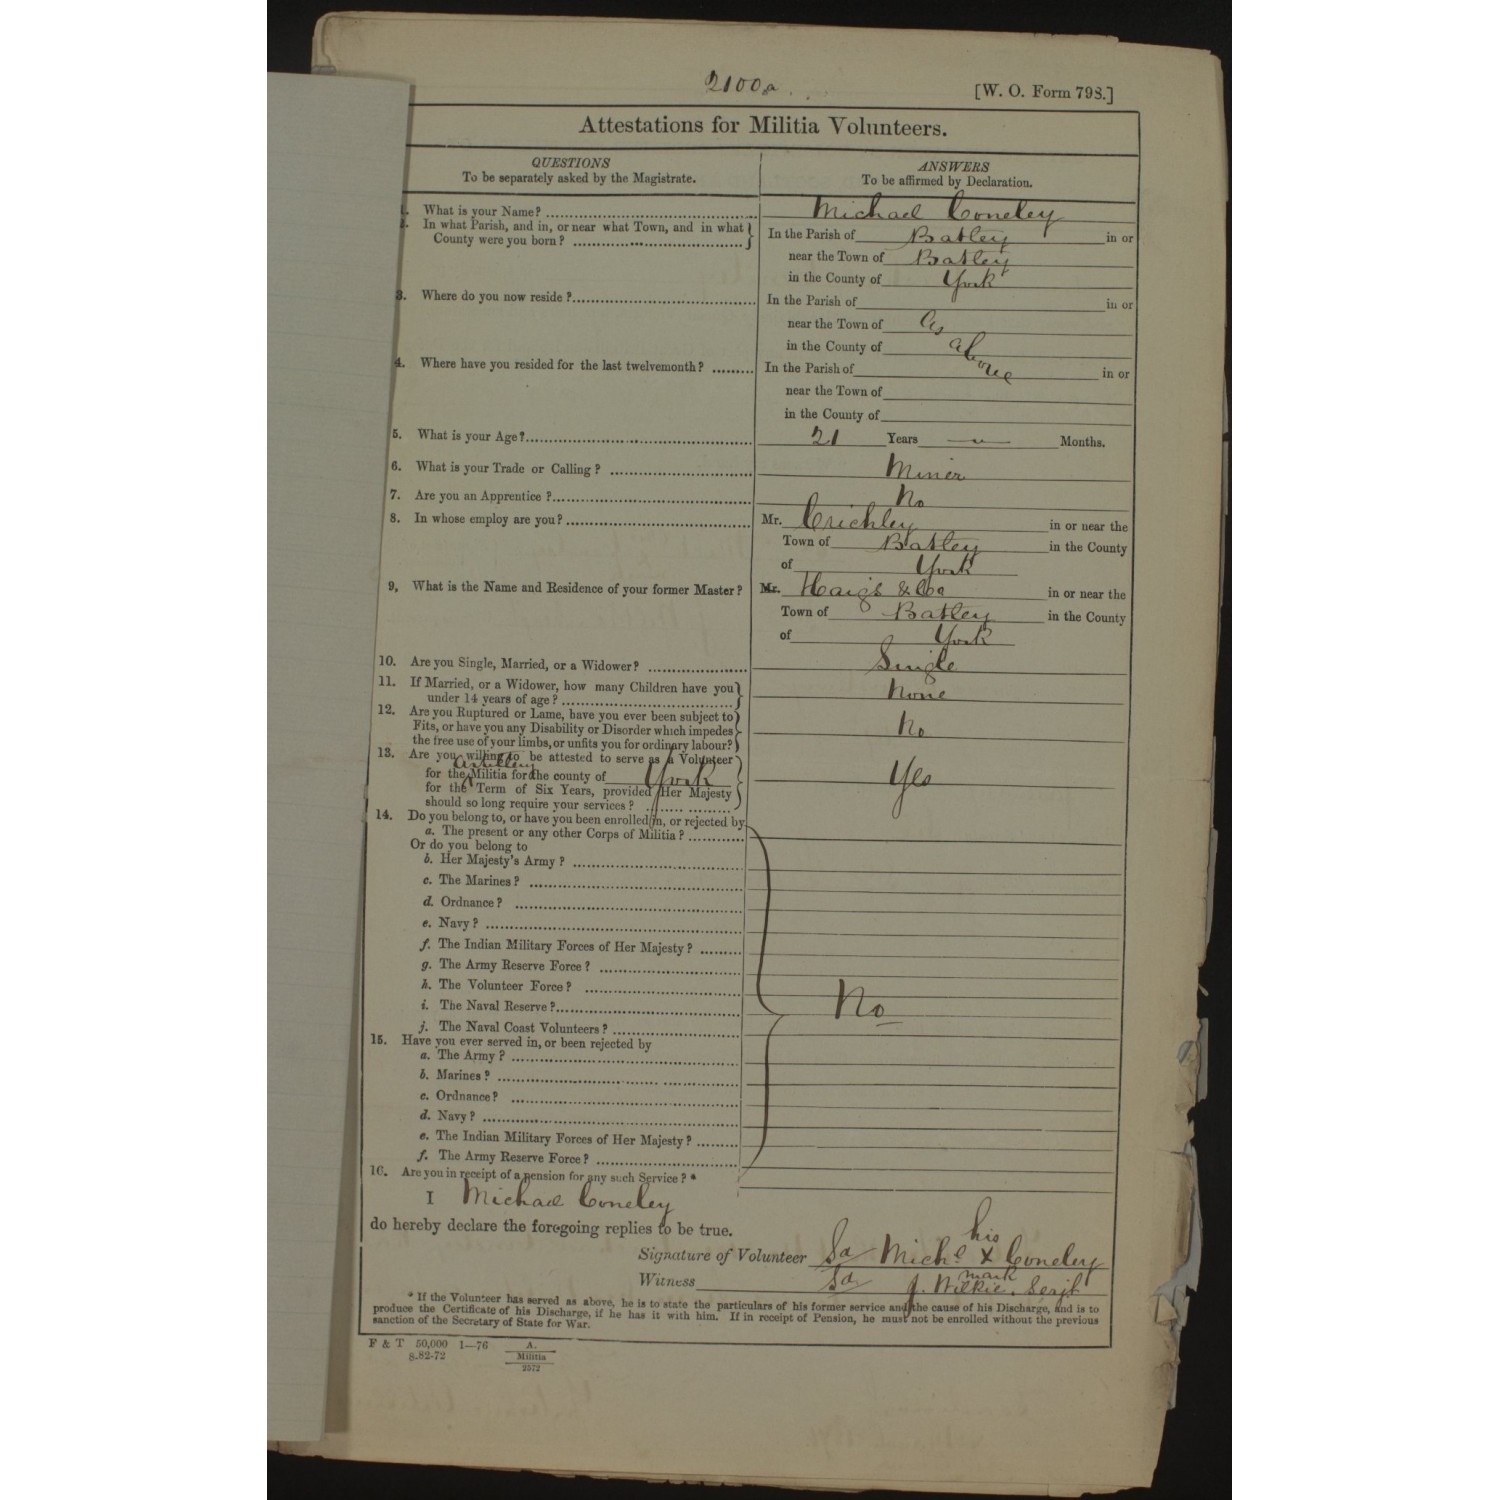 2100a
[W. O. Form 798.]
Attestations for Militia Volunteers.
QUESTIONS
To be separately asked by the Magistrate.
ANSWERS
To be affirmed by Declaration.
1. What is your Name?
Michael Coneley
2. In what Parish, and in, or near what Town, and in what
County were you born?
In the Parish of Batley in or
near the Town of Batley
in the County of York
3. Where do you now reside?
In the Parish of in or
near the Town of As
in the County of above
4. Where have you resided for the last twelvemonth?
In the Parish of in or
near the Town of
in the County of
5. What is your Age?
21 Years — " — Months.
6. What is your Trade or Calling?
Miner
7. Are you an Apprentice?
No
8. In whose employ are you?
Mr. Crichley in or near the
Town of Batley in the County
of York
9, What is the Name and Residence of your former Master?
Mr. Haigh & Co in or near the
Town of Batley in the County
of York
10. Are you Single, Married, or a Widower?
Single
11. If Married, or a Widower, how many Children have you
under 14 years of age?
None
12. Are you Ruptured or Lame, have you ever been subject to
Fits, or have you any Disability or Disorder which impedes
the free use of your limbs, or unfits you for ordinary labour?
No
13. Are you willing to be attested to serve as a Volunteer
for the Artillery Militia for the county of York
for the Term of Six Years, provided Her Majesty
should so long require your services?
Yes
14. Do you belong to, or have you been enrolled in, or rejected by
a. The present or any other Corps of Militia?
Or do you belong to
b. Her Majesty's Army?
c. The Marines?
d. Ordnance?
e. Navy?
f. The Indian Military Forces of Her Majesty?
g. The Army Reserve Force?
h. The Volunteer Force?
i. The Naval Reserve?
No
j. The Naval Coast Volunteers?
15. Have you ever served in, or been rejected by
a. The Army?
b. Marines?
c. Ordnance?
d. Navy?
e. The Indian Military Forces of Her Majesty?
f. The Army Reserve Force?
16. Are you in receipt of a pension for any such Service?*
I Michael Coneley
do hereby declare the foregoing replies to be true.
his
Signature of Volunteer Sd Michl X Coneley
mark
Witness Sd J. Wilkie. Serjt
* If the Volunteer has served as above, he is to state the particulars of his former service and the cause of his Discharge, and is to
produce the Certificate of his Discharge, if he has it with him. If in receipt of Pension, he must not be enrolled without the previous
sanction of the Secretary of State for War.
F & T 50,000 1—76
8.82-72
A.
Militia
2572